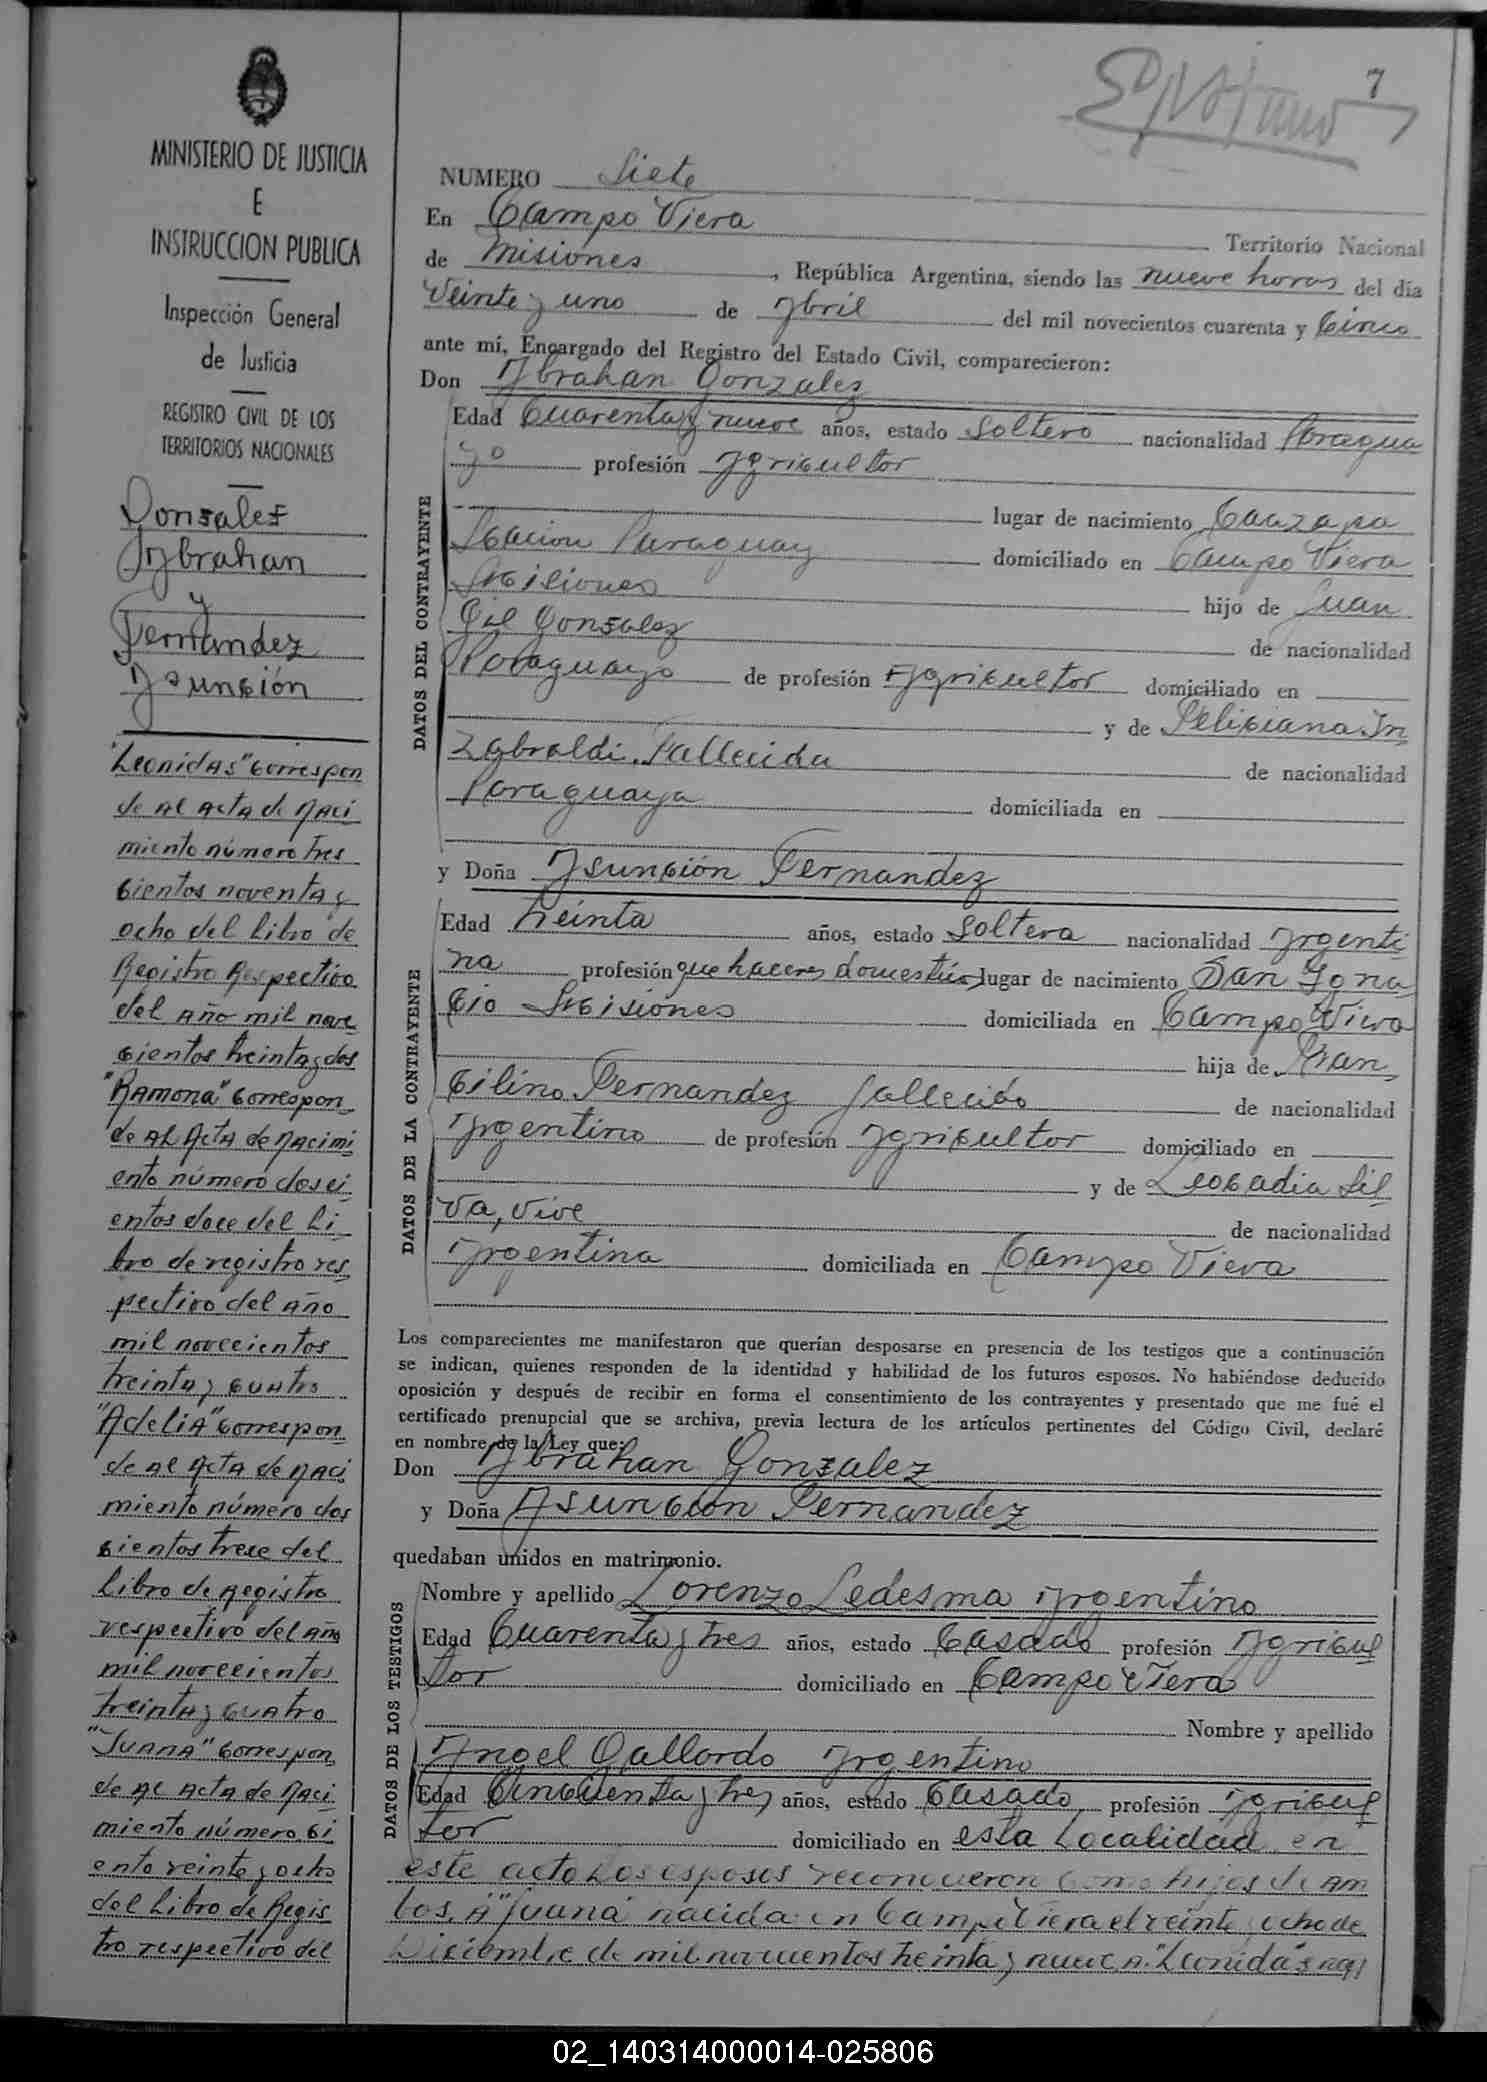 7
MINISTERIO DE JUSTICIA
E
INSTRUCCION PUBLICA
Inspección General
de Justicia
REGISTRO CIVIL DE LOS
TERRITORIOS NACIONALES
Gonzalez
Abrahan
y
Fernandez
Asunción
"Leonidas" correspon
de al acta de naci
miento número tres
cientos noventa y
ocho del libro de
Registro Respectivo
del año mil nove
cientos treinta y dos
"Ramona" correspon
de al acta de nacimi
ento número dosci
entos doce del li
bro de registro res
pectivo del año
mil novecientos
treinta y cuatro
"Adelia" correspon
de al acta de naci
miento número dos
cientos trece del
libro de Registro
respectivo del año
mil novecientos
treinta y cuatro
"Juana" correspon
de al acta de naci
miento número ci
ento veinte y ocho
del libro de Regis
tro respectivo del
NUMERO Siete
En Campo Viera Territorio Nacional
de Misiones, República Argentina, siendo las nueve horas del día
Veinte y uno de Abril del mil novecientos cuarenta y Cinco
ante mí, Encargado del Registro del Estado Civil, comparecieron:
Don Abrahan Gonzalez
DATOS DEL CONTRAYENTE
Edad Cuarenta y nueve años, estado Soltero nacionalidad Paragua
yo profesión Agricultor
lugar de nacimiento Caazapa
Nacion Paraguay domiciliado en Campo Viera
Misiones hijo de Juan
Gil Gonzalez de nacionalidad
Paraguayo de profesión Agricultor domiciliado en
y de Feliciana In
zabraldi. Fallecida de nacionalidad
Paraguaya domiciliada en
y Doña Asunción Fernandez
DATOS DE LA CONTRAYENTE
Edad treinta años, estado Soltera nacionalidad Argenti
na profesión que haceres domesticos lugar de nacimiento San Igna
cio Misiones domiciliada en Campo Viera
hija de Fran
cilino Fernandez fallecido de nacionalidad
Argentino de profesión Agricultor domiciliado en
y de Leocadia Sil
va, vive de nacionalidad
Argentina domiciliada en Campo Viera
Los comparecientes me manifestaron que querían desposarse en presencia de los testigos que a continuación
se indican, quienes responden de la identidad y habilidad de los futuros esposos. No habiéndose deducido
oposición y después de recibir en forma el consentimiento de los contrayentes y presentado que me fué el
certificado prenupcial que se archiva, previa lectura de los artículos pertinentes del Código Civil, declaré
en nombre de la Ley que:
Don Abrahan Gonzalez
y Doña Asunción Fernandez
quedaban unidos en matrimonio.
DATOS DE LOS TESTIGOS
Nombre y apellido Lorenzo Ledesma Argentino
Edad Cuarenta y tres años, estado Casado profesión Agricul
tor domiciliado en Campo Viera
Nombre y apellido
Angel Gallardo Argentino
Edad Cincuenta y tres años, estado Casado profesión Agricul
tor domiciliado en esta Localidad en
este acto los esposos reconocieron como hijos de am
bos, A "Juana" nacida en Campo Viera el veinte y ocho de
Diciembre de mil novecientos treinta y nueve, A. "Leonidas" naci
02_140314000014-025806